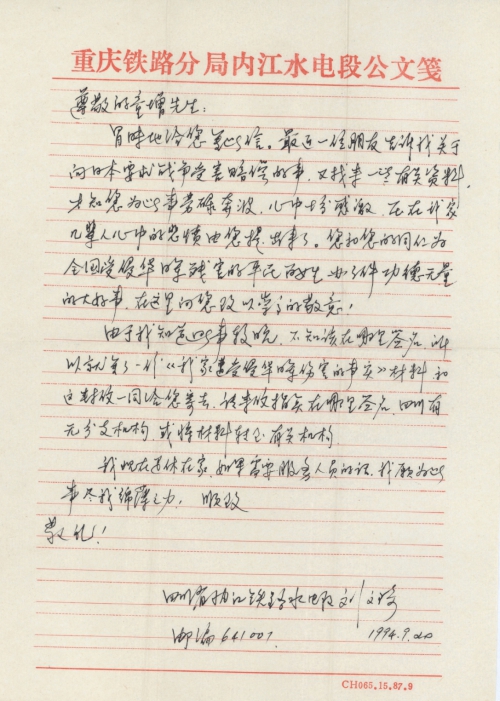 重庆铁路分局内江水电段公文笺
尊敬的童增先生:
冒昧地给您写此信。最近一位朋友告诉我关于
向日本要求战争受害赔偿的事,又找来一些有关资料,
才知您为此事劳碌奔波,心中十分感激,压在我家
几辈人心中的悲愤由您提出来了。您和您的同仁为
全国受侵华日军残害的平民百姓办了件功德无量
的大好事,在这里向您致以崇高的敬意!
由于我知道此事较晚,不知该在哪里签名,所
以就写了一份《我家遭受侵华日军伤害的事实》材料和
这封信一同给您寄去,请来信指点在哪里签名,四川有
无分支机构,或将材料转至有关机构。
我现在是休在家,如果需要服务人员的话,我愿为此
事尽我绵薄之力,顺致
敬礼!
四川省内江铁路水电段 刘文琦
邮编641001
1994.9.20
CH065.15.87.9